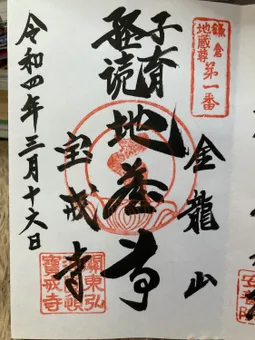 鎌倉
地蔵尊
第一番
金龍山
子育
経読
地蔵尊
宝戒寺
關東弘
寶戒寺
令和四年三月十六日